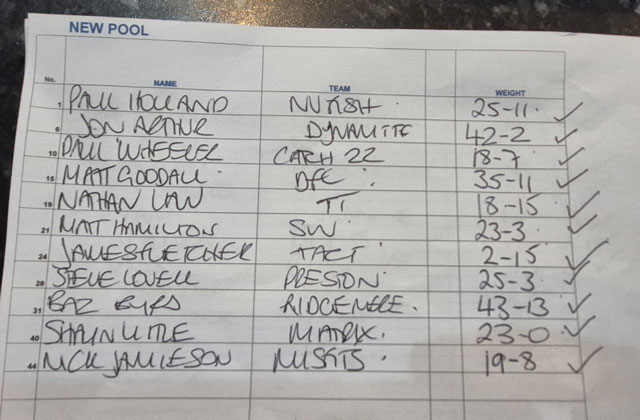 NEW POOL
No. NAME TEAM WEIGHT
1 PAUL HOLLAND NUFISH 25-11
6 JON ARTHUR DYNAMITE 42-2
10 PAUL WHEELER CATCH 22 18-7
15 MATT GOODALL DFC 35-11
19 NATHAN LAW TI 18-15
21 MATT HAMILTON SW 23-3
24 JAMES FLETCHER TACT 2-15
28 STEVE LOVELL PRESTON 25-3
31 BAZ EYRES RIDGEMERE 43-13
40 SHAUN LITTLE MATRIX 23-0
44 NICK JAMIESON MISFITS 19-8